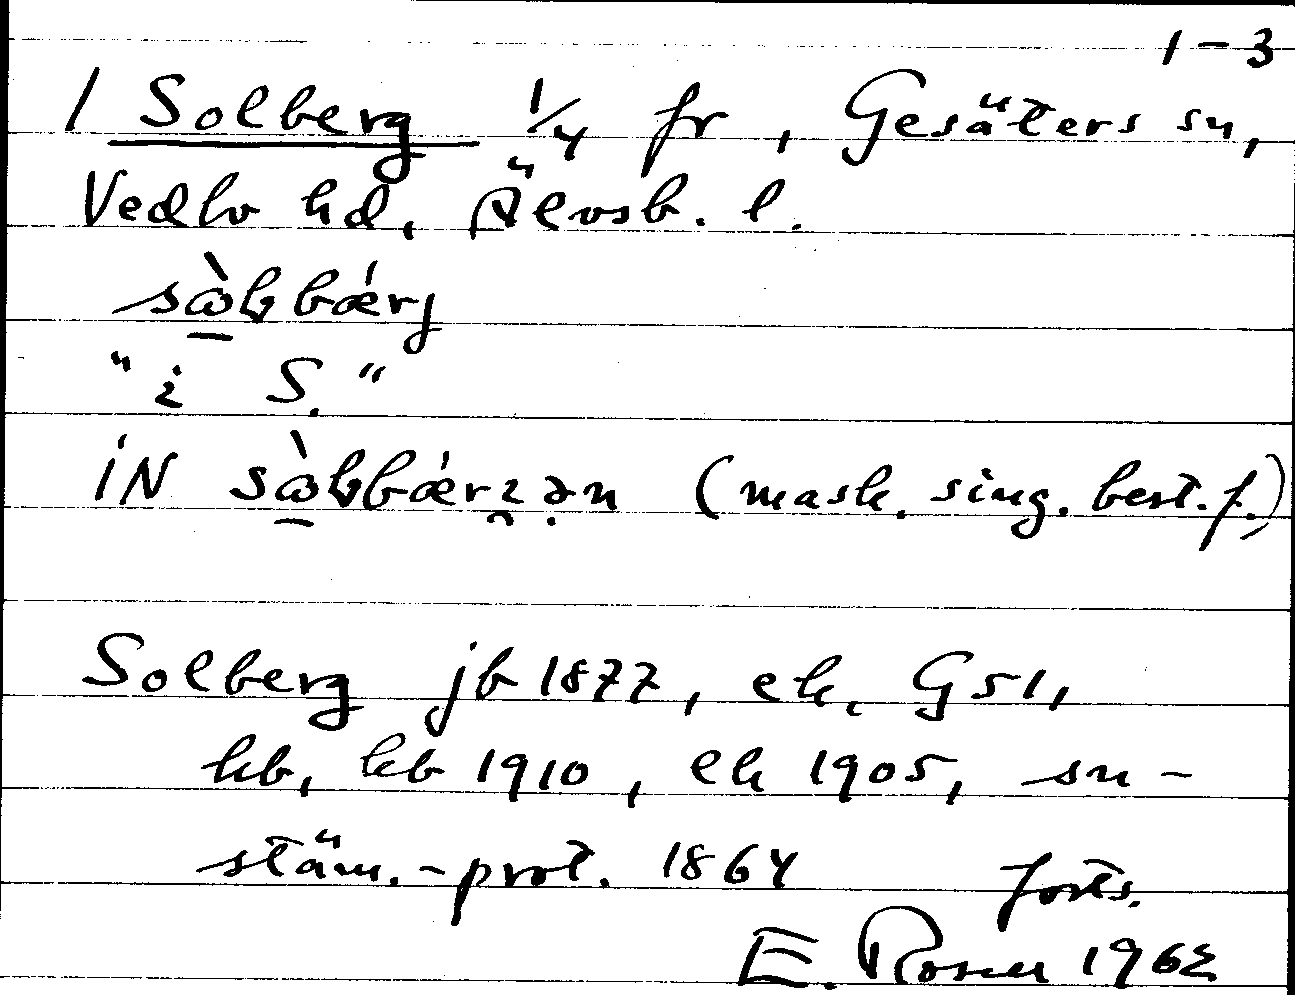 1-3
1 Solberg 1/4 fr, Gesäters sn,
Vedbo hd, Älvsb. l.
sὼbbǽrj
"i S."
iN
(mask. sing. best. f.)
Solberg jb 1877, ek, GS1,
hb, kb 1910, ek 1905, sn-
stäm.-prot. 1864 forts.
E. Rosen 1962